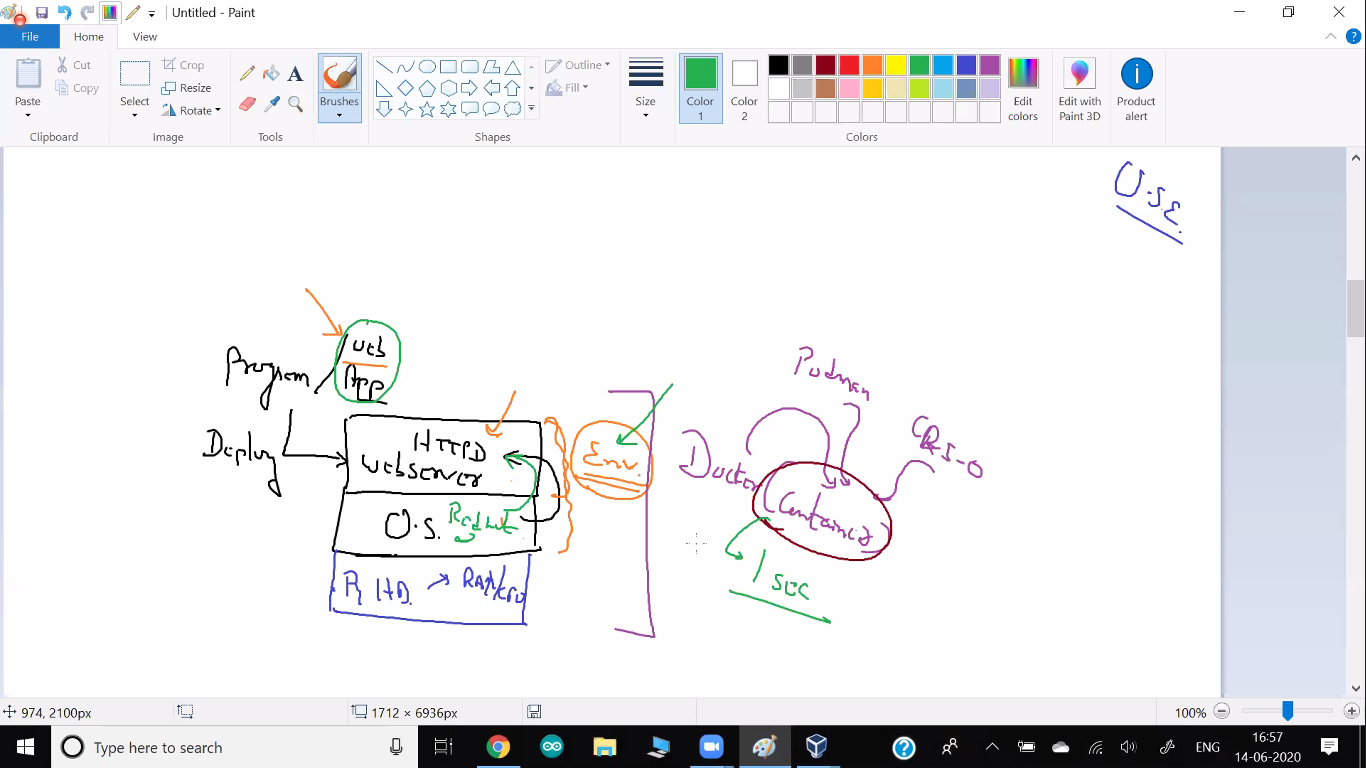 Untitled - Paint
File
Home
View
Paste
Cut
Copy
Clipboard
Select
Crop
Resize
Rotate
Image
A
Tools
Brushes
Shapes
Outline
Fill
Size
Color 1
Color 2
Edit colors
Edit with Paint 3D
Product alert
Colors
Program
web
App
Deploy
HTTPD
webserver
O.S.
RedHat
R HD. → RAM/CPU
Env.
Podman
Docker
CRI-O
Container
1 sec
974, 2100px
1712 × 6936px
100%
Type here to search
ENG
16:57
14-06-2020